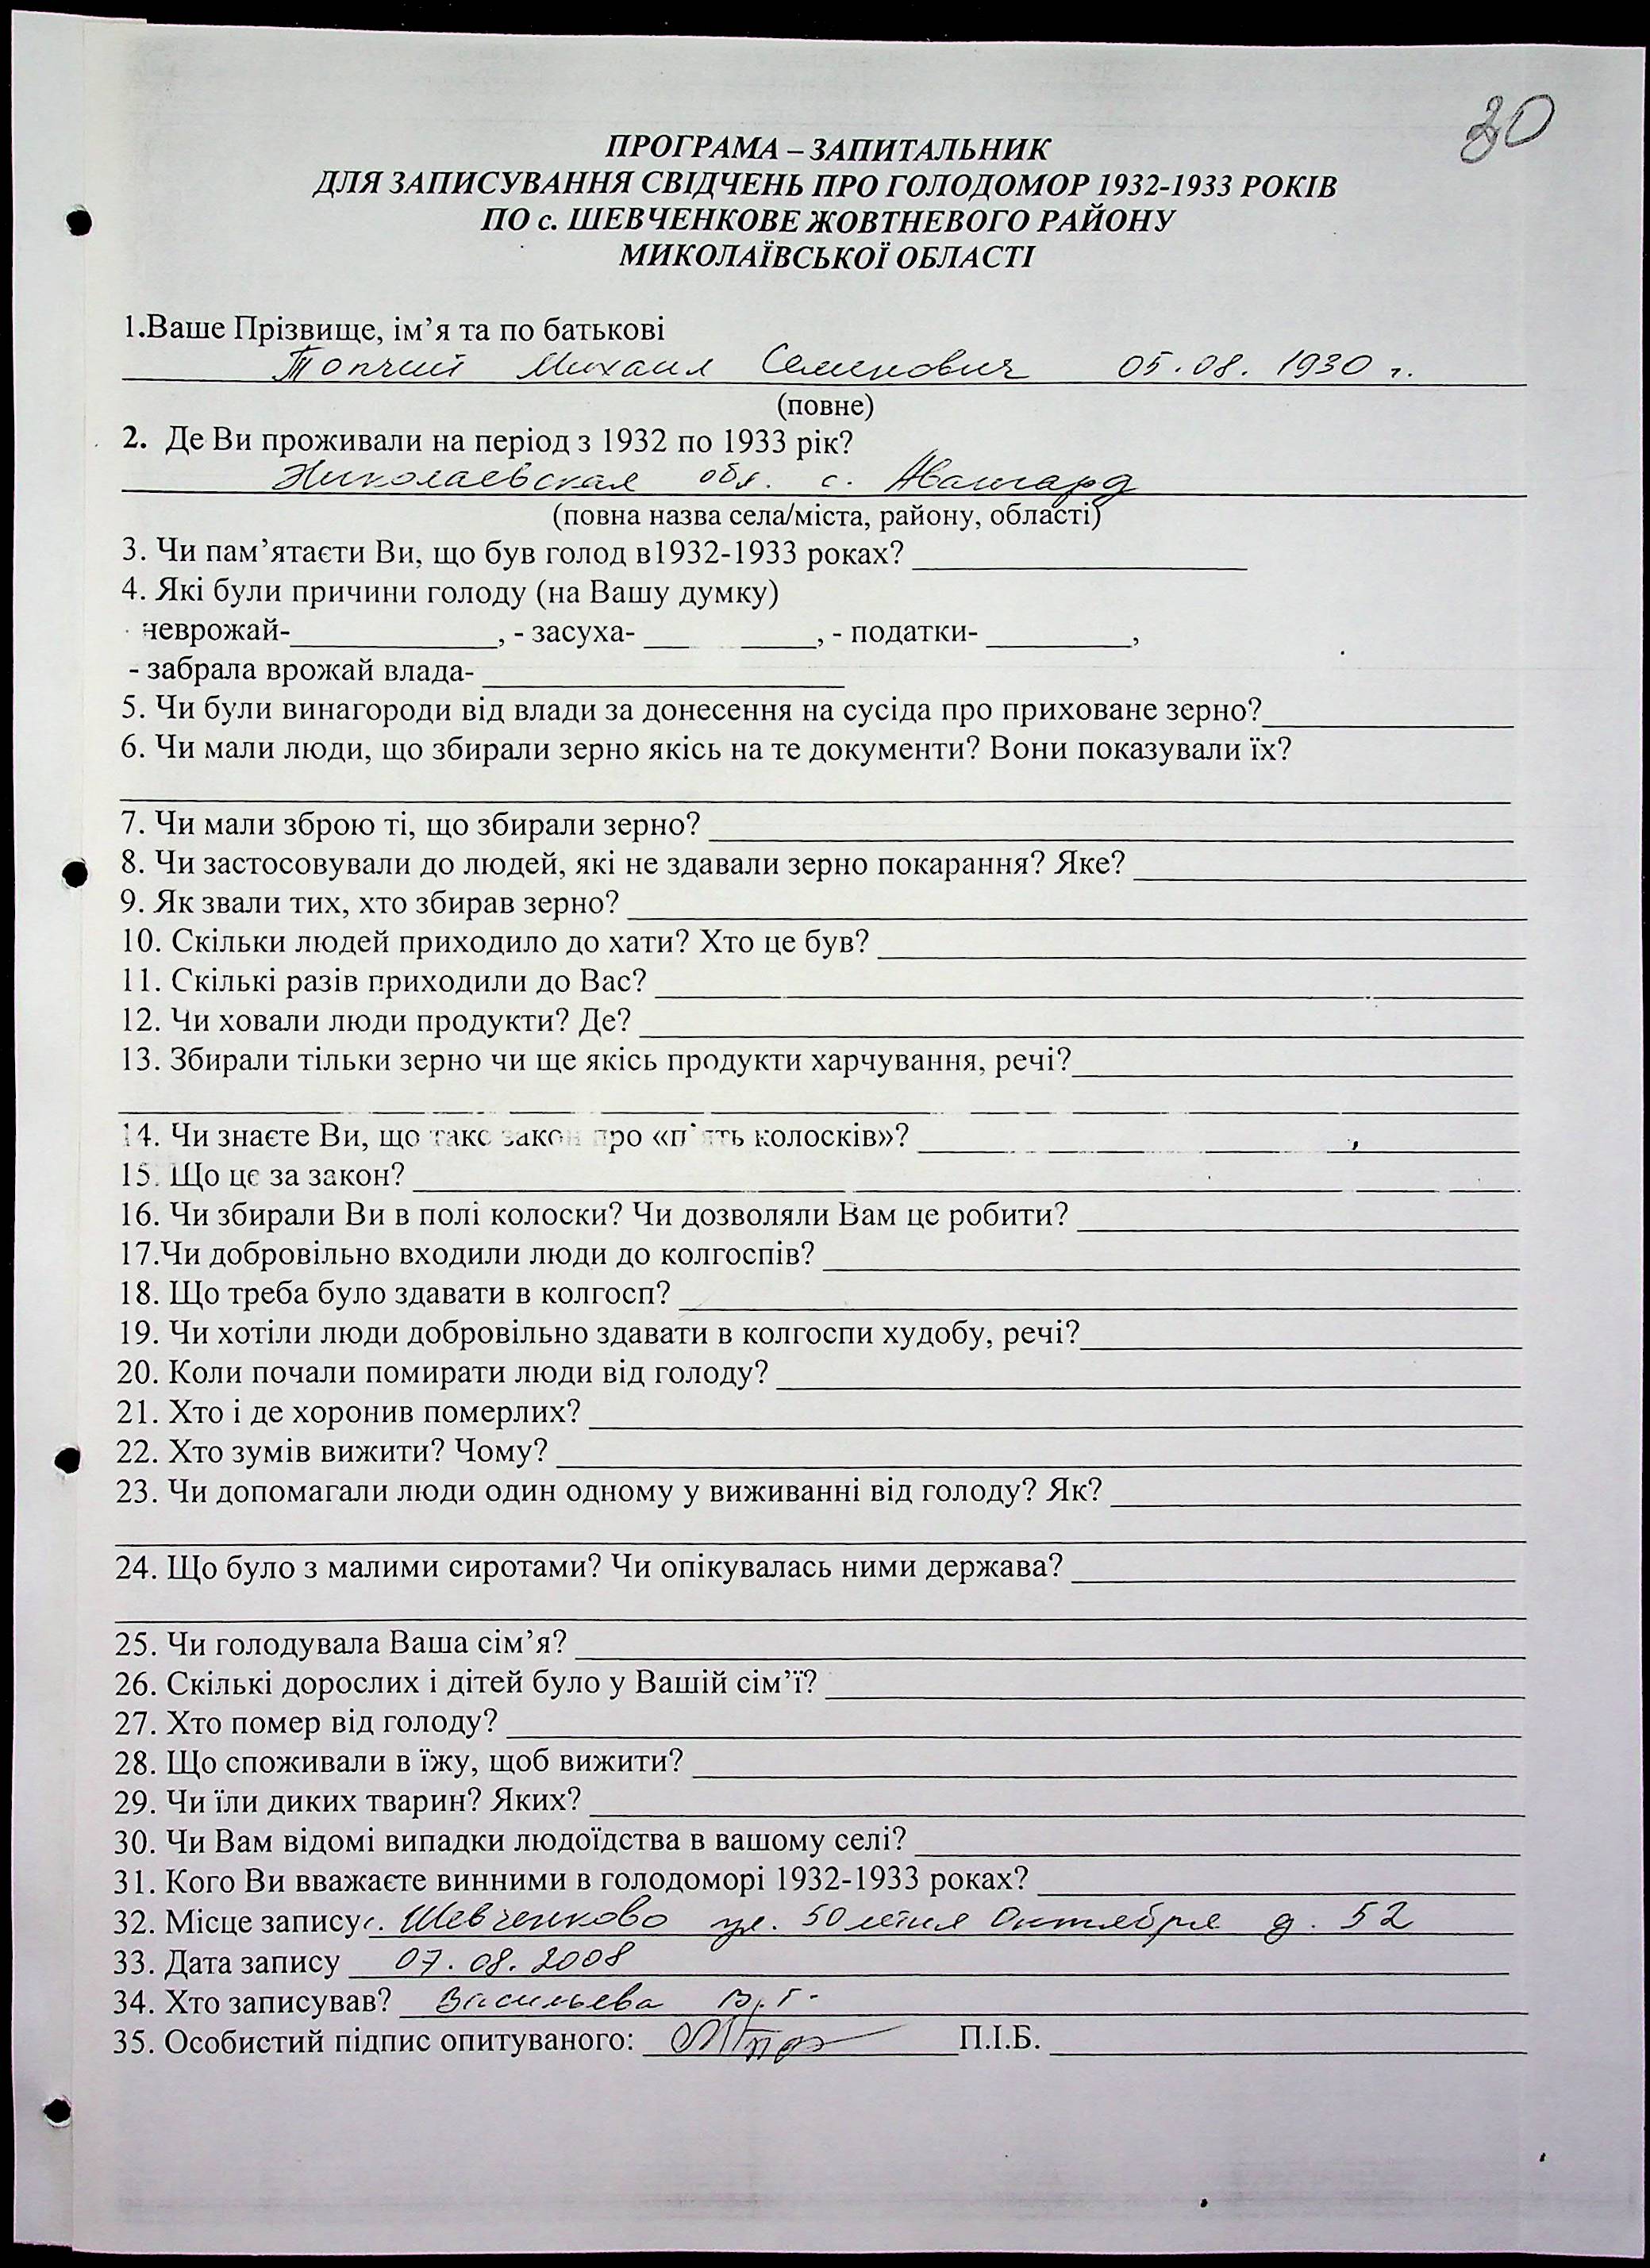 30
ПРОГРАМА – ЗАПИТАЛЬНИК
ДЛЯ ЗАПИСУВАННЯ СВІДЧЕНЬ ПРО ГОЛОДОМОР 1932-1933 РОКІВ
ПО с. ШЕВЧЕНКОВЕ ЖОВТНЕВОГО РАЙОНУ
МИКОЛАЇВСЬКОЇ ОБЛАСТІ
1.Ваше Прізвище, ім’я та по батькові
Топчий Михаил Семенович 05.08.1930 г.
(повне)
2. Де Ви проживали на період з 1932 по 1933 рік?
Николаевская обл. с. Авангард
(повна назва села/міста, району, області)
3. Чи пам’ятаєти Ви, що був голод в1932-1933 роках?
4. Які були причини голоду (на Вашу думку)
неврожай- , - засуха- , - податки- ,
- забрала врожай влада-
5. Чи були винагороди від влади за донесення на сусіда про приховане зерно?
6. Чи мали люди, що збирали зерно якісь на те документи? Вони показували їх?
7. Чи мали зброю ті, що збирали зерно?
8. Чи застосовували до людей, які не здавали зерно покарання? Яке?
9. Як звали тих, хто збирав зерно?
10. Скільки людей приходило до хати? Хто це був?
11. Скількі разів приходили до Вас?
12. Чи ховали люди продукти? Де?
13. Збирали тільки зерно чи ще якісь продукти харчування, речі?
14. Чи знаєте Ви, що таке закон про «п`ять колосків»?
15. Що це за закон?
16. Чи збирали Ви в полі колоски? Чи дозволяли Вам це робити?
17.Чи добровільно входили люди до колгоспів?
18. Що треба було здавати в колгосп?
19. Чи хотіли люди добровільно здавати в колгоспи худобу, речі?
20. Коли почали помирати люди від голоду?
21. Хто і де хоронив померлих?
22. Хто зумів вижити? Чому?
23. Чи допомагали люди один одному у виживанні від голоду? Як?
24. Що було з малими сиротами? Чи опікувалась ними держава?
25. Чи голодувала Ваша сім’я?
26. Скількі дорослих і дітей було у Вашій сім’ї?
27. Хто помер від голоду?
28. Що споживали в їжу, щоб вижити?
29. Чи їли диких тварин? Яких?
30. Чи Вам відомі випадки людоїдства в вашому селі?
31. Кого Ви вважаєте винними в голодоморі 1932-1933 роках?
32. Місце запису с. Шевченково ул. 50 летия Октября д. 52
33. Дата запису 07.08.2008
34. Хто записував? Васильева В.Г.
35. Особистий підпис опитуваного: П.І.Б.